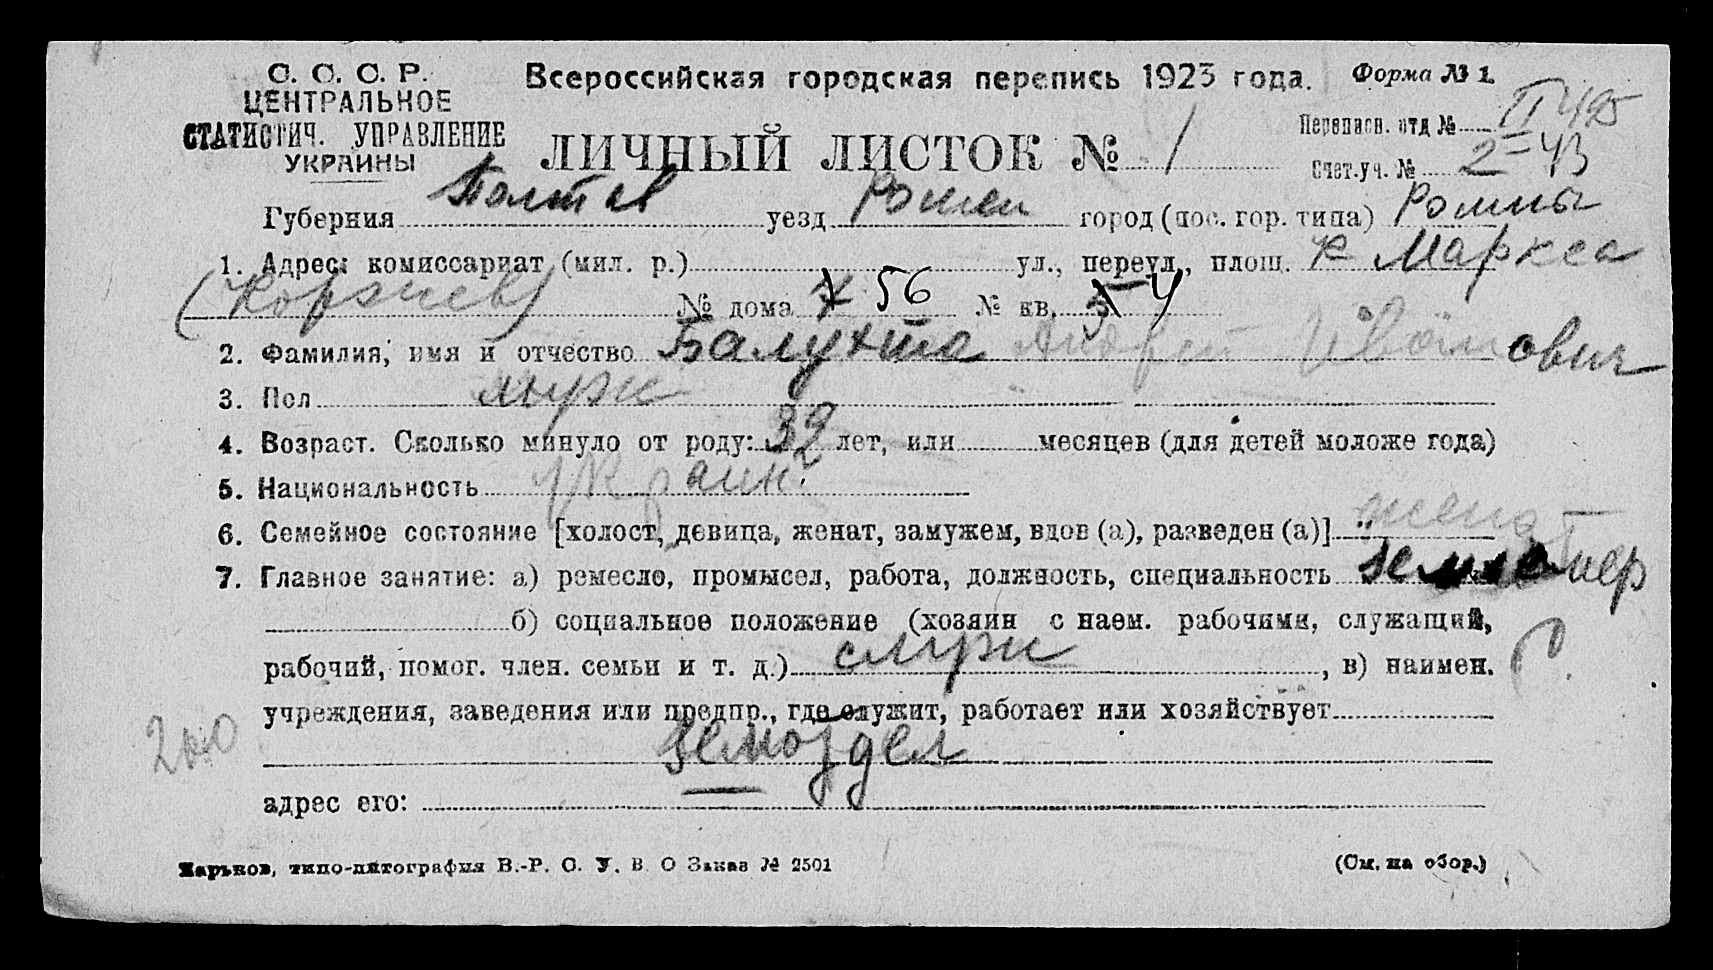 С. С. С. Р.
ЦЕНТРАЛЬНОЕ
СТАТИСТИЧ. УПРАВЛЕНИЕ
УКРАИНЫ
Всероссийская городская перепись 1923 года.
Форма № 1.
ЛИЧНЫЙ ЛИСТОК № 1
Переписн. отд № II 495
Счет.-уч. № 2-43
Губерния Полтав уезд Ромен город (пос. гор. типа) Ромны
1. Адрес: комиссариат (мил. р.) ул., переул., площ. К Маркса
(Коржев) № дома 7 56 № кв. 5 4
2. Фамилия, имя и отчество Балухта Андрей Иванович
3. Пол муж
4. Возраст. Сколько минуло от роду: 32 лет, или месяцев (для детей моложе года)
5. Национальность Украин.
6. Семейное состояние [холост, девица, женат, замужем, вдов (а), разведен (а)] женат
7. Главное занятие: а) ремесло, промысел, работа, должность, специальность землемер
б) социальное положение (хозяин с наем. рабочими, служащий,
рабочий, помог. член. семьи и т. д.) служ, в) наимен.
учреждения, заведения или предпр., где служит, работает или хозяйствует
Земотдел
адрес его:
Харьков, типо-литография В.-Р. С. У. В. О Заказ № 2501
(См. на обор.)